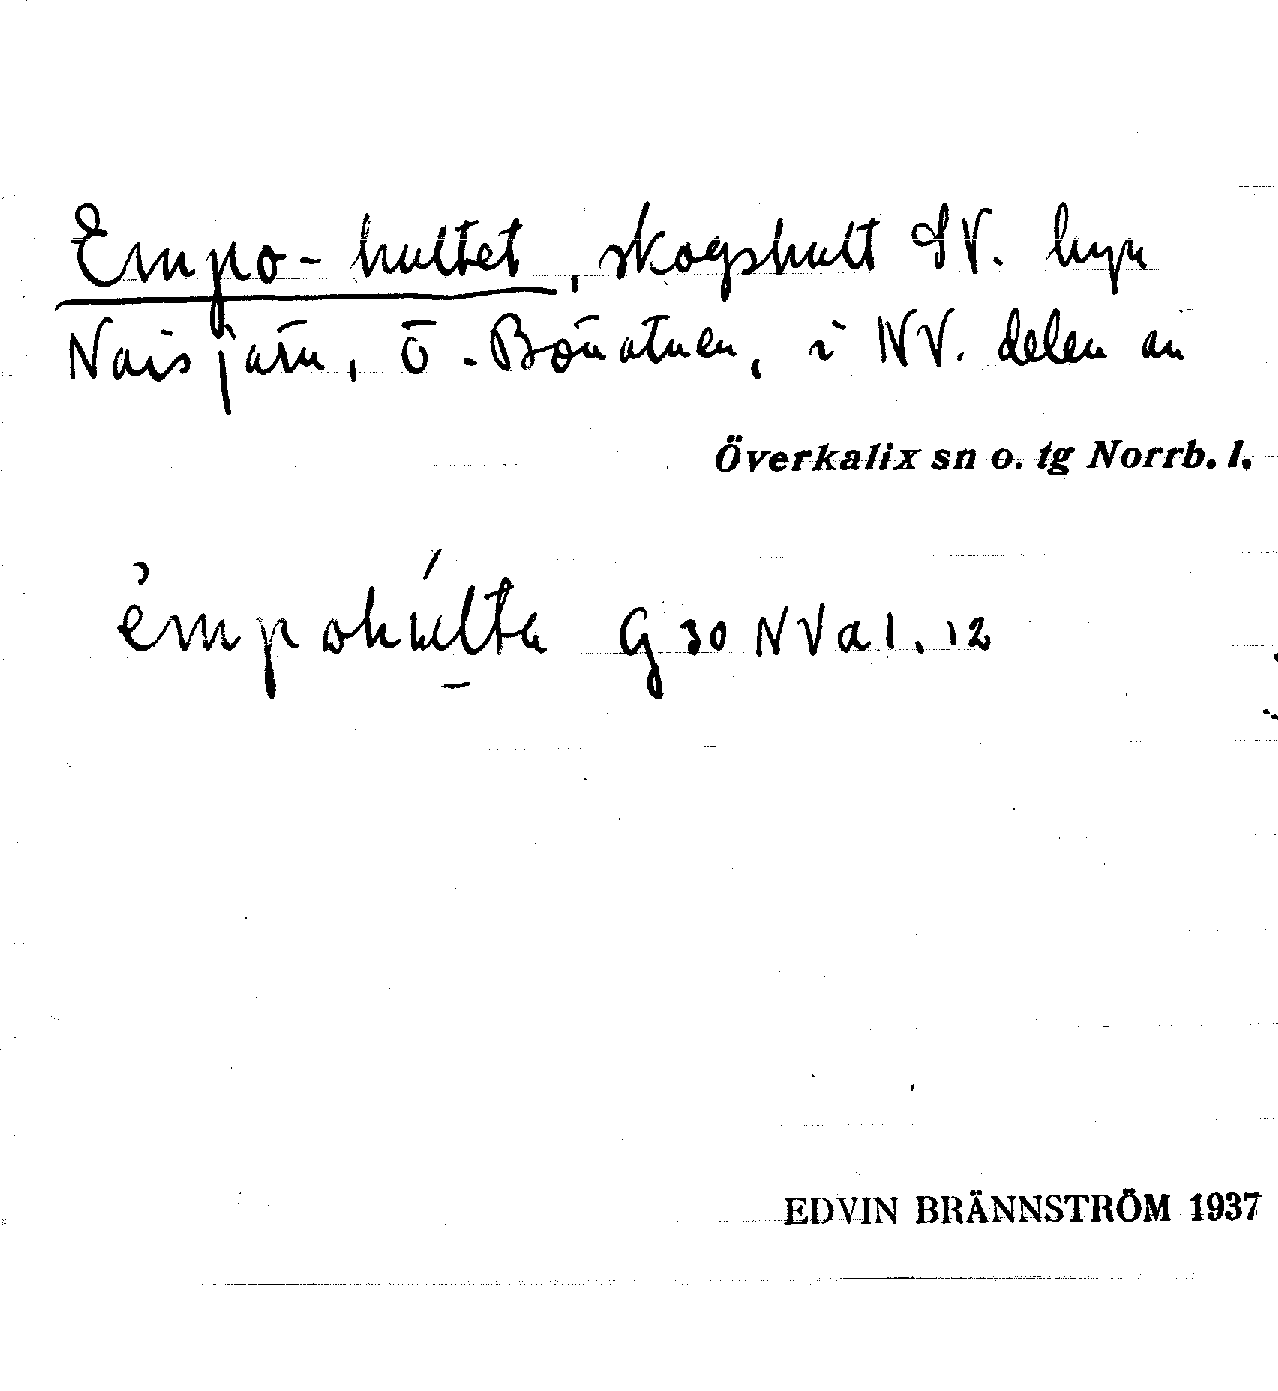 Empo-hultet, skogshult SV. byn
Naisjärv, Ö-Börvatnen, i NV. delen av
Överkalix sn o. tg Norrb. l.
émpohúlta G 30 NV a 1. 12
EDVIN BRÄNNSTRÖM 1937